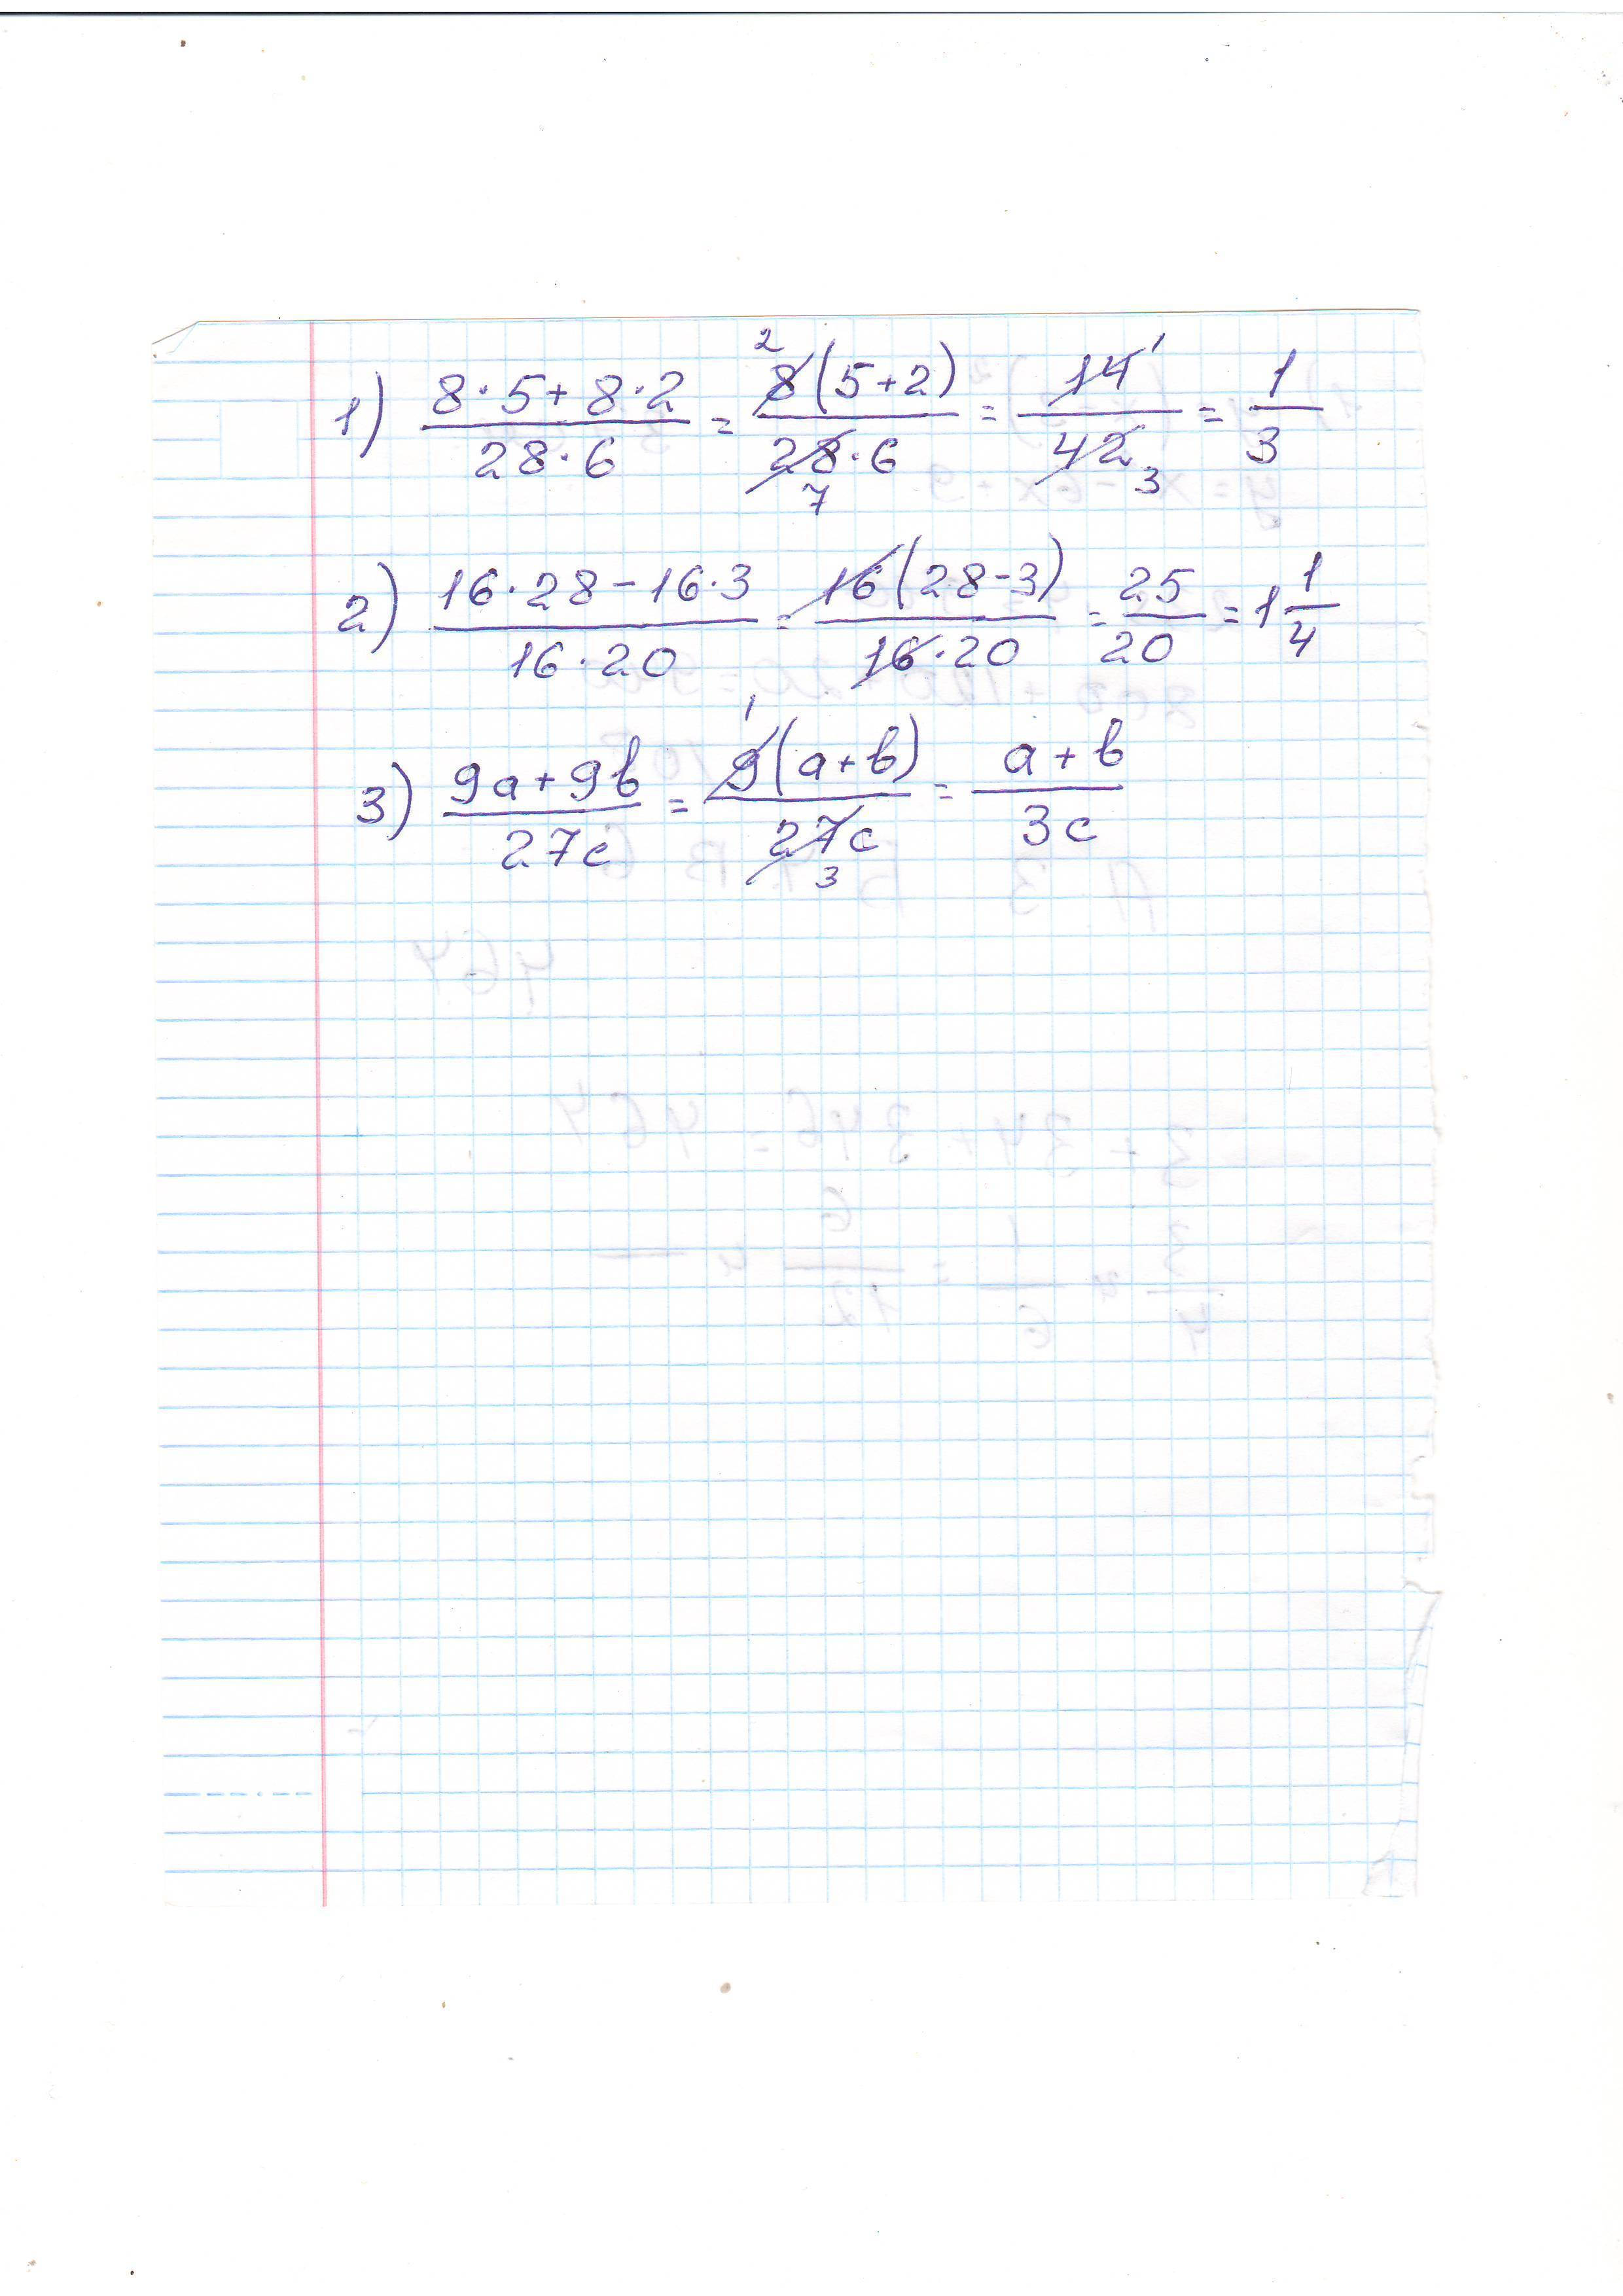 1) (8·5+8·2)/(28·6) = 2 8(5+2)/(28·6) 7 = 14 1/42 3 = 1/3
2) (16·28−16·3)/(16·20) = 16(28-3)/(16·20) = 25/20 = 1 1/4
3) (9a+9b)/27c = 1 9(a+b)/27c 3 = (a+b)/3c